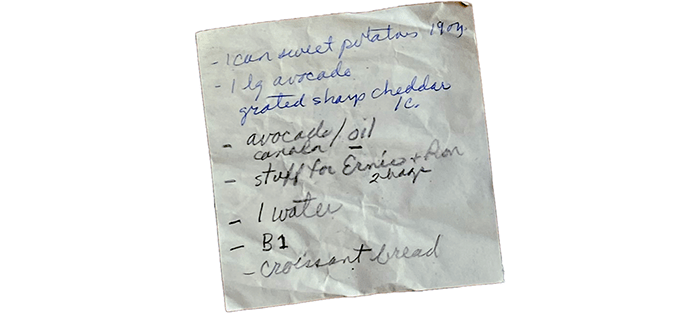 - 1 can sweet potatoes 19oz
- 1 lg avocado
grated sharp cheddar
1c.
- avocado/oil
canola
- stuff for Ernies + Ron
2 bags
- 1 water
- B1
- croissant bread